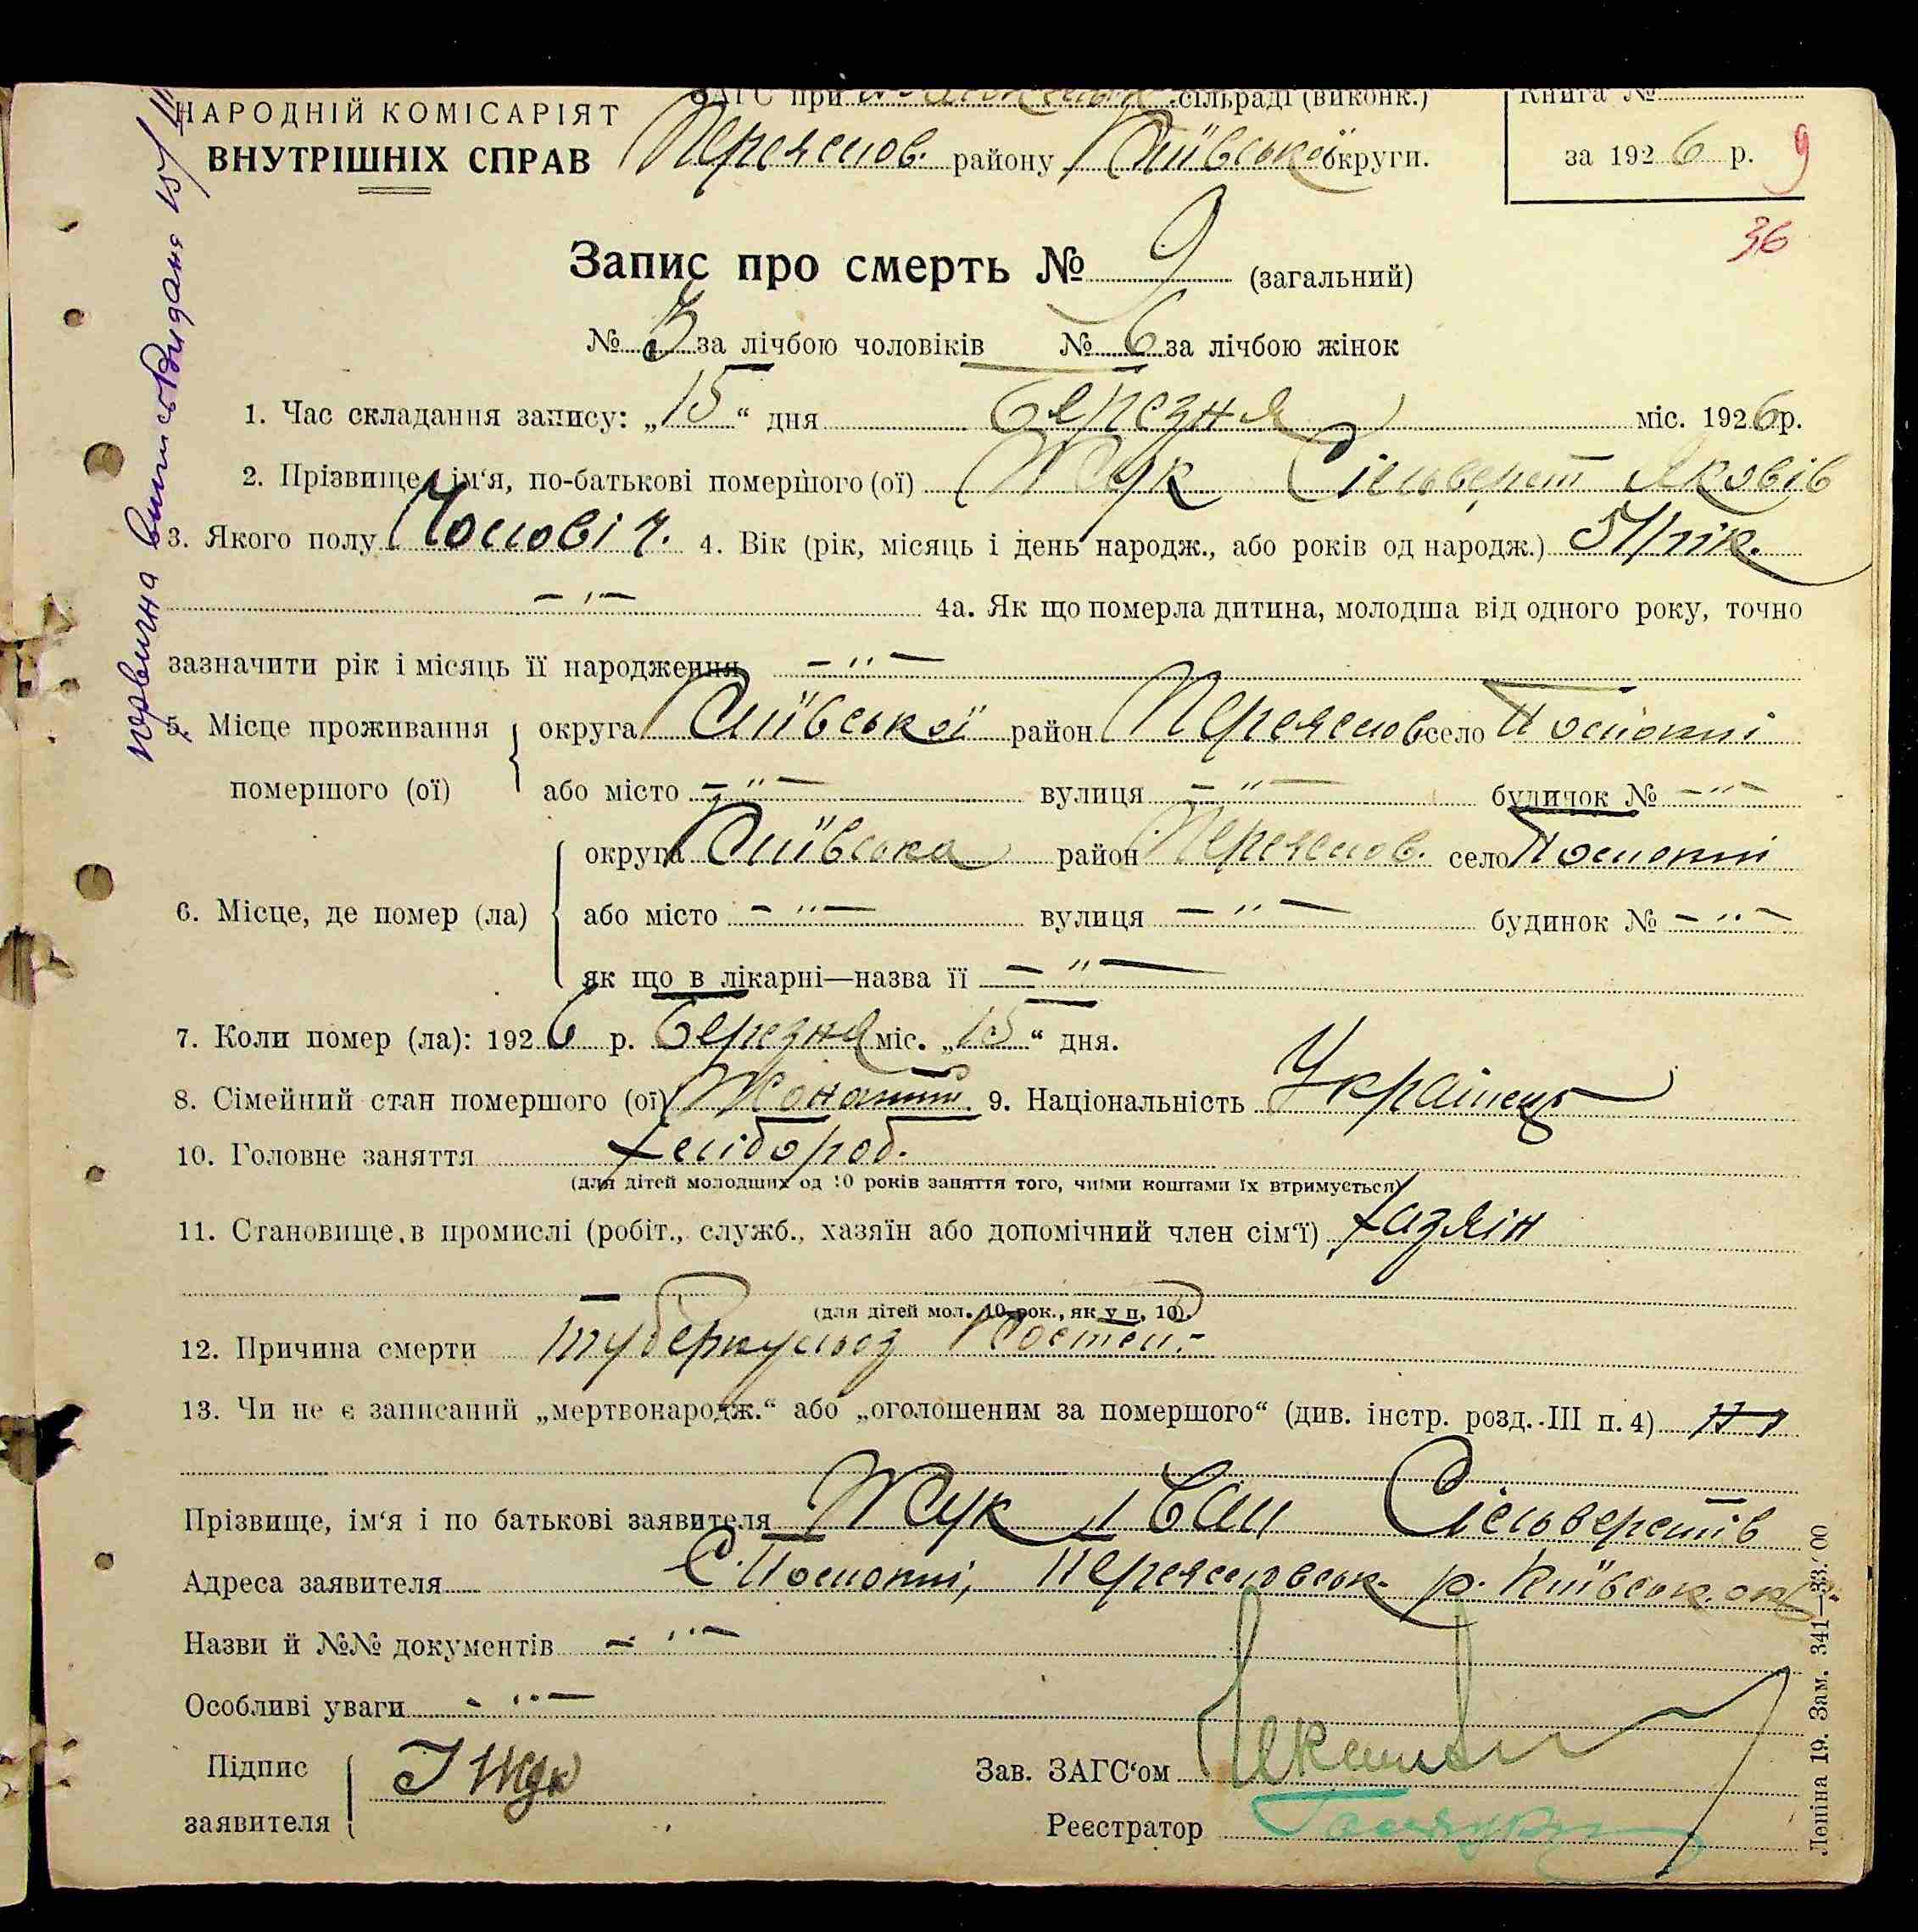 НАРОДНІЙ КОМІСАРІЯТ
ВНУТРІШНІХ СПРАВ
ЗАГС при сільраді (виконк.)
Переяслов. району Київської округи.
Книга №
за 1926 р. 9
36
Запис про смерть № 9 (загальний)
№ 3 за лічбою чоловіків № 6 за лічбою жінок
1. Час складання запису: „15“ дня березня міс. 1926 р.
2. Прізвище, ім‘я, по-батькові помершого (ої) Жук Сільверст Яковів
3. Якого полу Чоловіч. 4. Вік (рік, місяць і день народж., або років од народж.) 51 рік.
— „ — 4а. Як що померла дитина, молодша від одного року, точно
зазначити рік і місяць її народження — „ —
5. Місце проживання округа Київської район Переяслов село Пологи
помершого (ої) або місто — „ — вулиця — „ — будинок № — „ —
округа Київська район Переяслов. село Пологи
6. Місце, де помер (ла) або місто — „ — вулиця — „ — будинок № — „ —
як що в лікарні—назва її — „ —
7. Коли помер (ла): 1926 р. Березня міс. „15“ дня.
8. Сімейний стан помершого (ої) Жонатий. 9. Національність Українець
10. Головне заняття хлібороб.
(для дітей молодших од 10 років заняття того, чиїми коштами їх втримується)
11. Становище в промислі (робіт., служб., хазяїн або допомічний член сім‘ї) хазяін
(для дітей мол. 10 рок., як у п. 10).
12. Причина смерти туберкульоз Костей.
13. Чи не є записаний „мертвонародж.“ або „оголошеним за помершого“ (див. інстр. розд. III п. 4)
Прізвище, ім‘я і по батькові заявителя Жук Іван Сільверстів
Адреса заявителя С. Пологи, Переясловськ. р. Київськ. окр.
Назви й №№ документів — „ —
Особливі уваги — „ —
Підпис
заявителя І Жук
Зав. ЗАГС‘ом
Реєстратор
первична виписъ видана 15/III
Леніна 19. Зам. 341—33.000